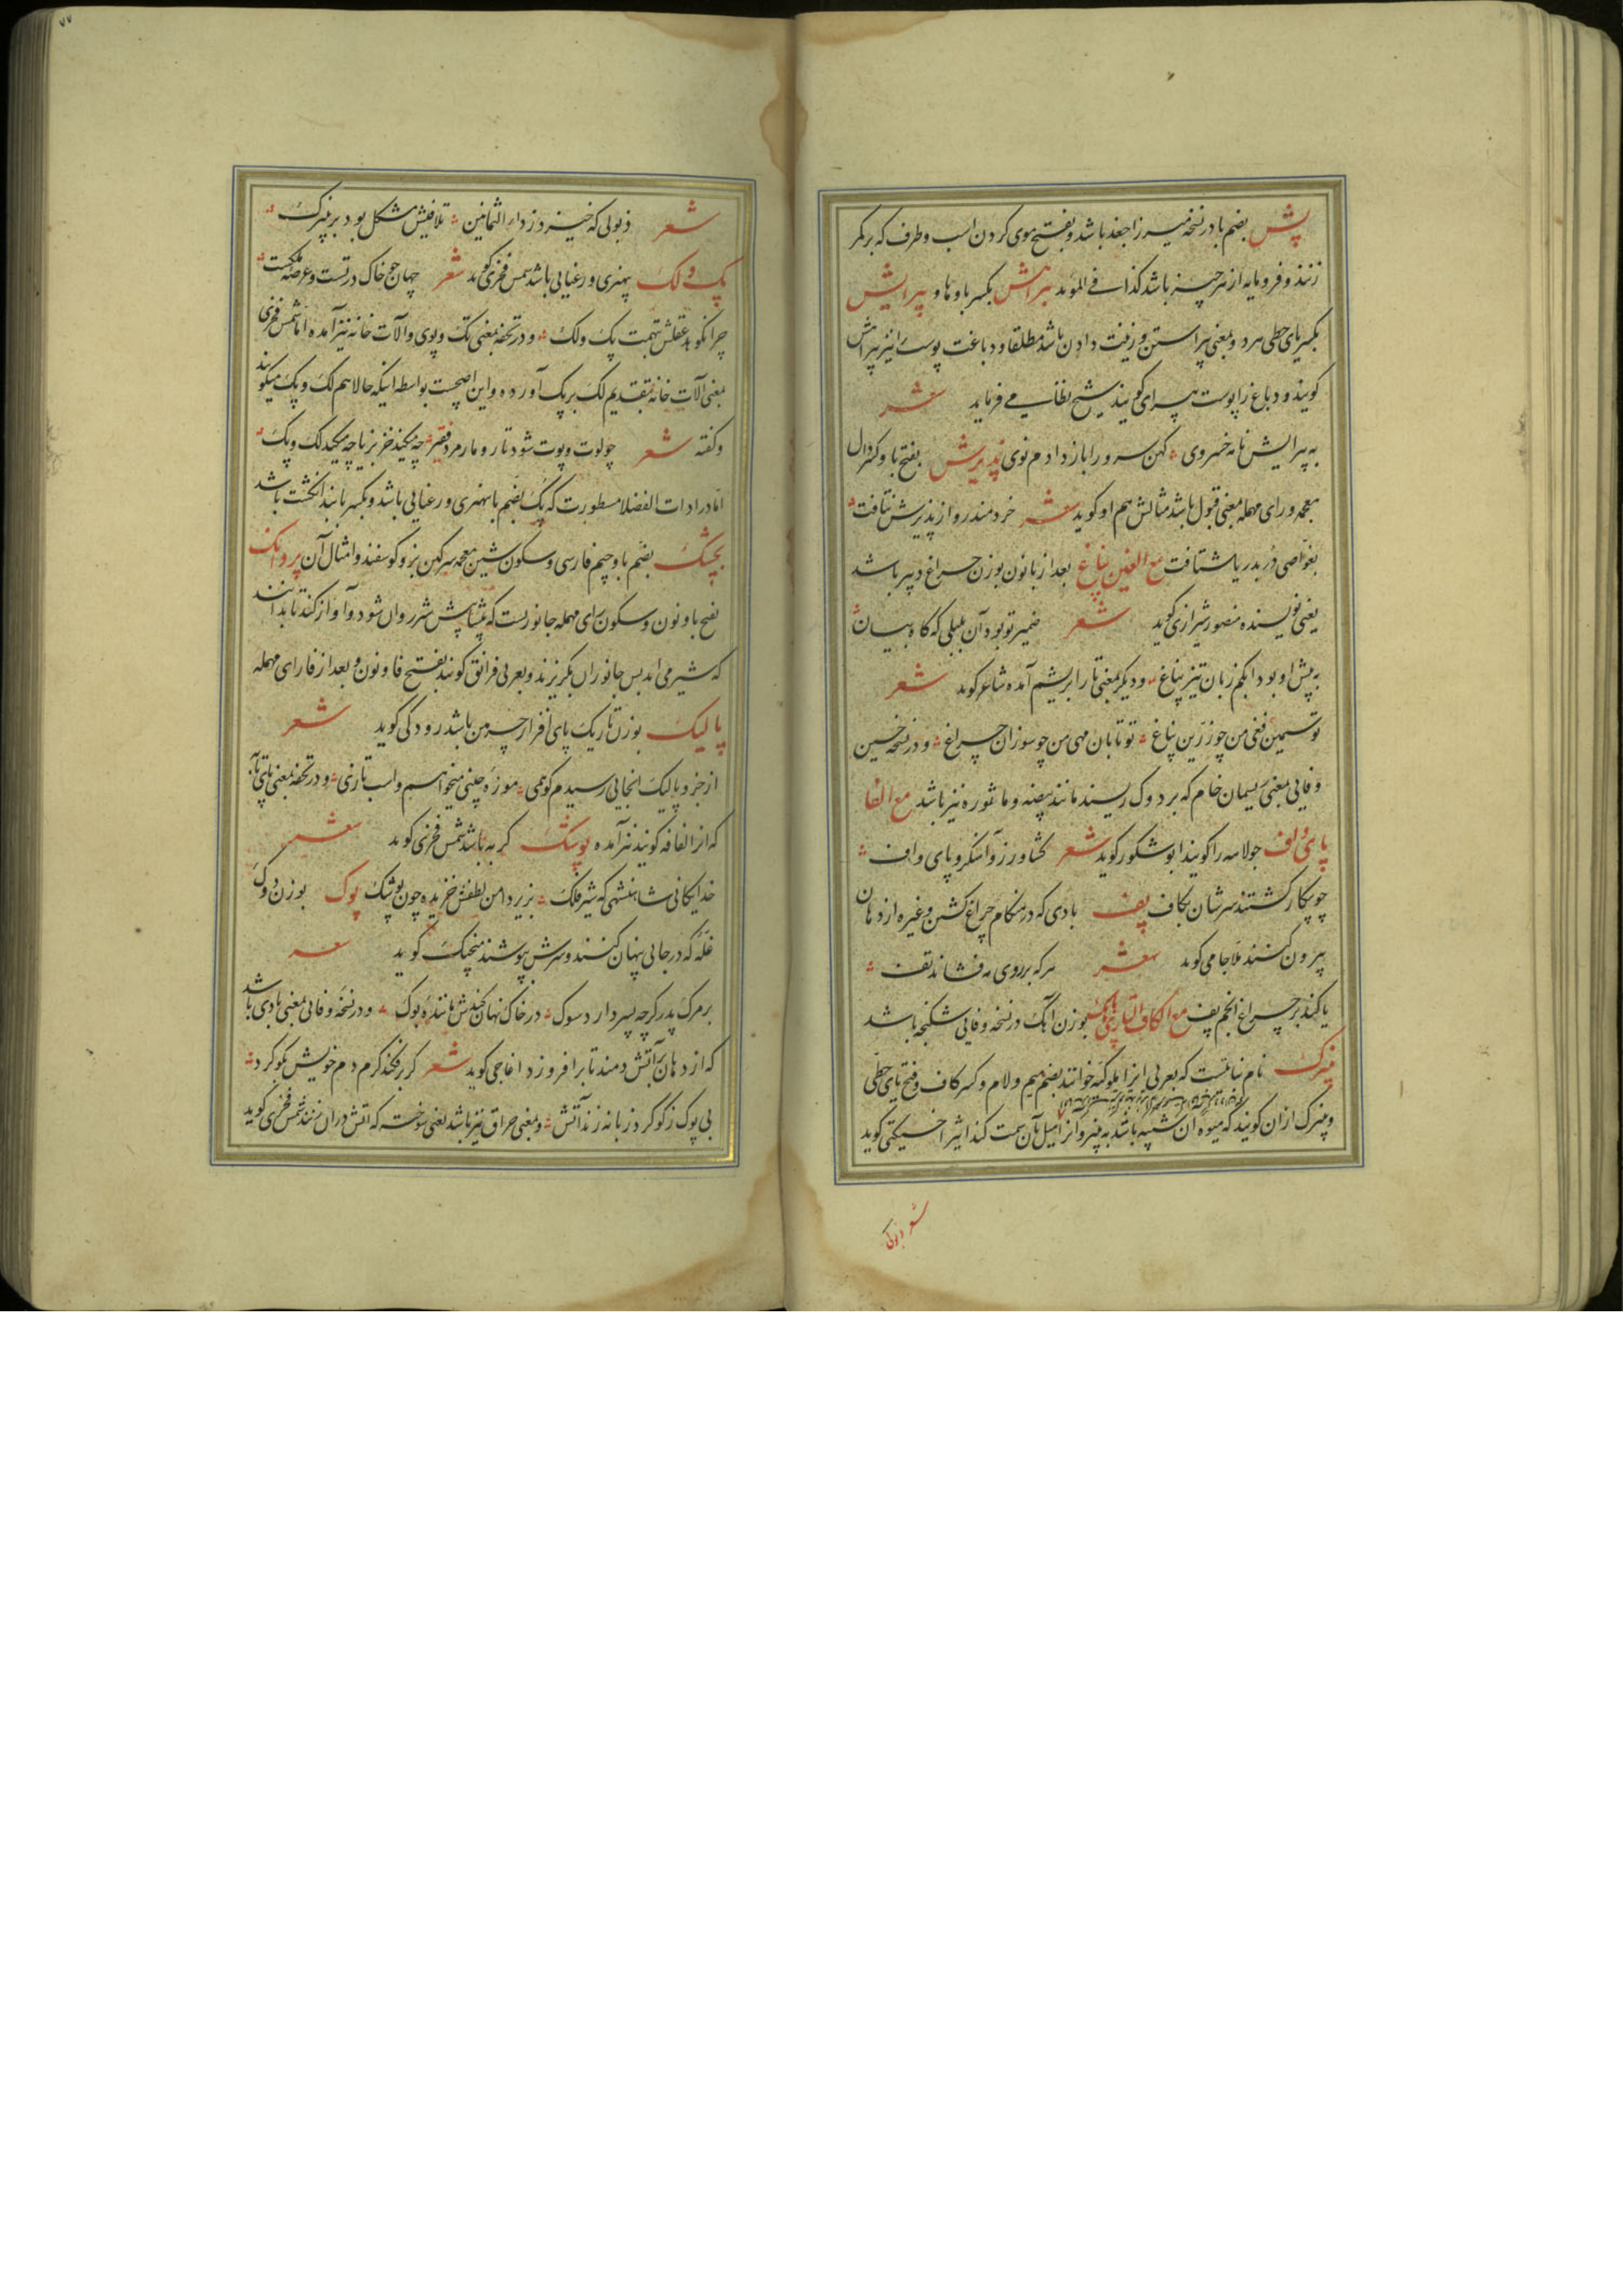 پش بضم با در نسخه میرزا جغد باشد و بفتح موی گردن اسب و طرف که بر کمر
زنند و فرومایه از هر چیز باشد کذا فی المؤید پیراهش بکسر با و ها و پیرایش
بکسر یای حطی هر دو بمعنی پیراستن و زینت دادن باشد مطلقا و دباغت پوست را نیز پیراهش
کویند و دباغ را پوست پیرای کویند شیخ نظامی می فرماید شعر
به پیرایش نامه خسروی کهن سرو را باز دادم نوی پذیرش بفتح با و کسر ذال
معجمه و رای مهمله بمعنی قبول باشد مثالش هم او کوید شعر خردمند رو از پذیرش نتافت
بغواصی در بدریا شتافت مع الغین پناغ بعد از با نون بوزن چراغ دبیر باشد
یعنی نویسنده منصور شیرازی کوید شعر ضمیر تو بود آن بلبلی که گاه بیان
به پیش او بود ابکم زبان تیز پناغ و دیکر بمعنی تار ابریشم آمده شاعر کوید شعر
تو سیمین فغی من چو زرین پناغ تو تابان مهی من چو سوزان چراغ و در نسخه حسین
وفایی بمعنی ریسمان خام که بر دوک ریسند مانند بیضه و ماشوره نیز باشد مع الفا
پای واف جولاهه را کویند ابو شکور کوید شعر کشاورز و آهنکر و پای واف
چو بیکار کشتند سرشان بکاف پف بادی که در هنکام چراغ کشتن و غیره از دهان
بیرون کنند ملا جامی کوید شعر هر که بر روی مه فشاند تف
یا کند بر چراغ انجم پف مع الکاف التازی بوزن آبک در نسخه وفایی شکنجه باشد
پنیرک نام نباتیست که بعربی انرا ملوکیه خوانند بضم میم و لام و کسر کاف و فتح یای حطی
و پنیرک از ان کویند که میوه ان شبیه باشد به پنیر و آنرا میل بآن سمت کند اثیر اخسیکتی کوید
شعر ذبولی
٧٧
شعر ذبولی که خیزد ز داء الثمانین تلافیش مشکل بود بر پنیرک
پک و لک پهنری و رعنایی باشد شمس فخری کوید شعر جهان جو خاک درتست و عرصه ملکست
چرا نکوید عقلش تهمت پک و لک و در تحفه بمعنی تک و پوی و آلات خانه نیز آمده اما شمس فخری
بمعنی آلات خانه بتقدیم لک بر پک آورده و این اصحست بواسطه اینکه حالا هم لک و پک میکویند
و کفته شعر چو لوت و پوت شود تار و مار مرد فقیر چه میکند خر بزیا چه میکند لک و پک
اما در ادات الفضلا مسطورست که پک بضم با بهنری و رعنایی باشد و بکسر با بند انکشت باشد
پچشک بضم با و جیم فارسی و سکون شین معجمه سرکین بز و کوسفند و امثال آن پروانک
بفتح با و نون و سکون رای مهمله جانوریست که پیشاپیش شیر روان شود و آواز کند تا بدانند
که شیر می اید پس جانوران بکریزند و بعربی فرانق کویند بفتح فا و نون و بعد از فا رای مهمله
پالیک بوزن تاریک پای افزار چرمین باشد رودکی کوید شعر
از خر و پالیک انجایی رسیدم کو همی موزه چینی میخواهم و اسب تازی و در تحفه بمعنی پای تابه
که انرا لفافه کویند نیز آمده پوشک کربه باشد شمس فخری کوید شعر
خدایکانی شاهنشهی که شیر فلک بزیر دامن لطفش خزیده چون پوشک پوک بوزن دوک
غله که در جایی پنهان کنند و سرش بپوشند منجیک کوید شعر
بر مرک پدر کرچه پسر دارد سوک در خاک نهان کندش ماننده پوک و در نسخه وفایی بمعنی بادی باشد
که از دهان بر آتش دمند تا برافروزد اغاجی کوید شعر کر برفکند کرم دم خویش بکوکرد
بی پوک ز کوکرد زبانه زند آتش و بمعنی حراق نیز باشد یعنی سوخته که اتش در ان زنند شمس فخری کوید